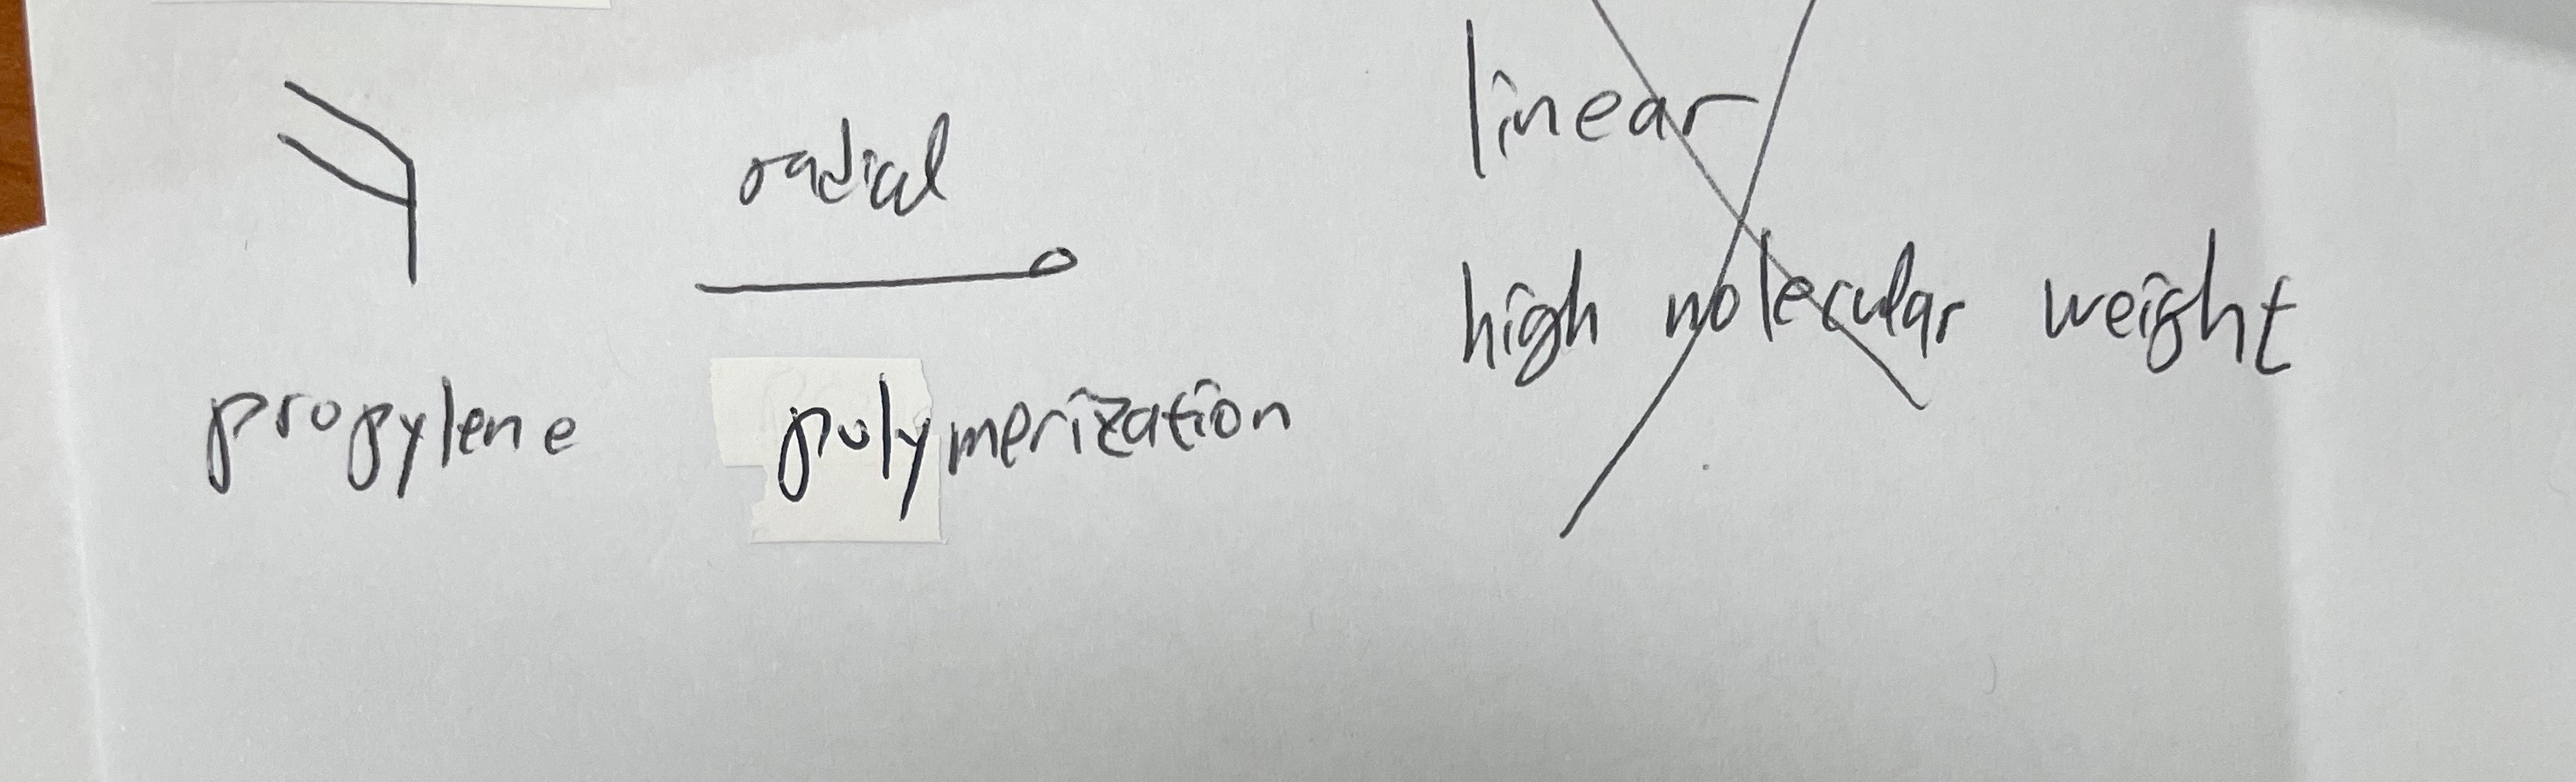 radial
propylene polymerization
linear
high molecular weight